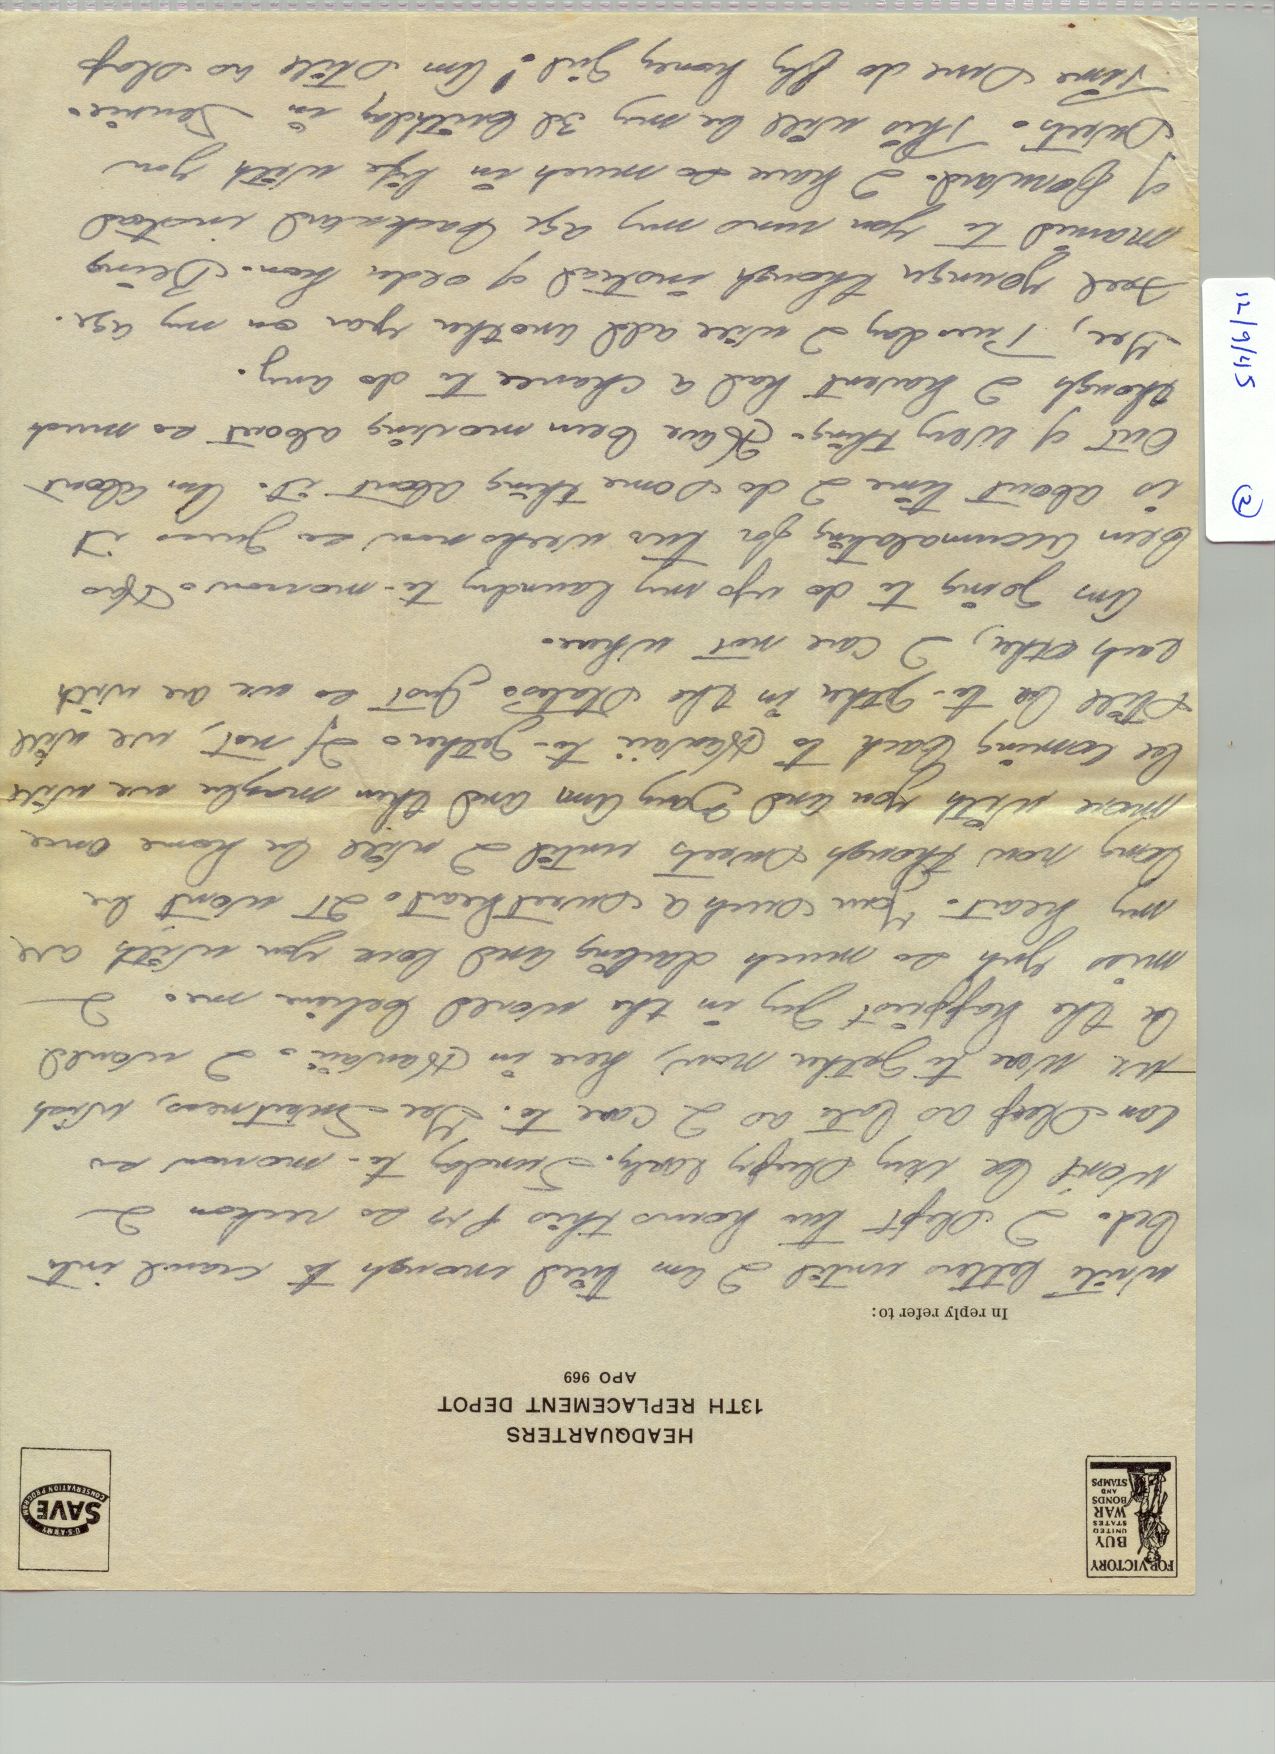 FOR VICTORY
BUY
UNITED
STATES
WAR
BONDS
AND
STAMPS
U·S·ARMY
SAVE
CONSERVATION PROGRAM
HEADQUARTERS
13TH REPLACEMENT DEPOT
APO 969
In reply refer to:
write letters until I am tired enough to crawl into
bed. I slept two hours this P.M. so reckon I
won't be very sleepy early. Sunday to-morrow so
can sleep as late as I care to. Gee Sweetness, wish
we were to gether now, here in Hawaii. I would
be the happiest guy in the world believe me. I
miss you so much darling and love you with all
my heart. Your such a sweetheart. It won't be
long now though sweets until I will be home once
more with you and Gary Ann and then maybe we will
be coming back to Hawaii to-gether. If not, we will
still be to-gether in the states. Just so we are with
each other, I care not where.
Am going to do up my laundry to-morrow. Has
been accumalating for two weeks now so guess it
is about time I do some thing about it. Am about
out of every thing. Have been moving about so much
though I havent had a chance to do any.
Gee, Tuesday I will add another year on my age.
Feel younger though instead of older hon. Being
married to you runs my age backward instead
of forward. I have so much in life with you
sweets. This will be my 3d birthday in service.
Time sure do fly honey girl! Am still as slap
12/9/45
2